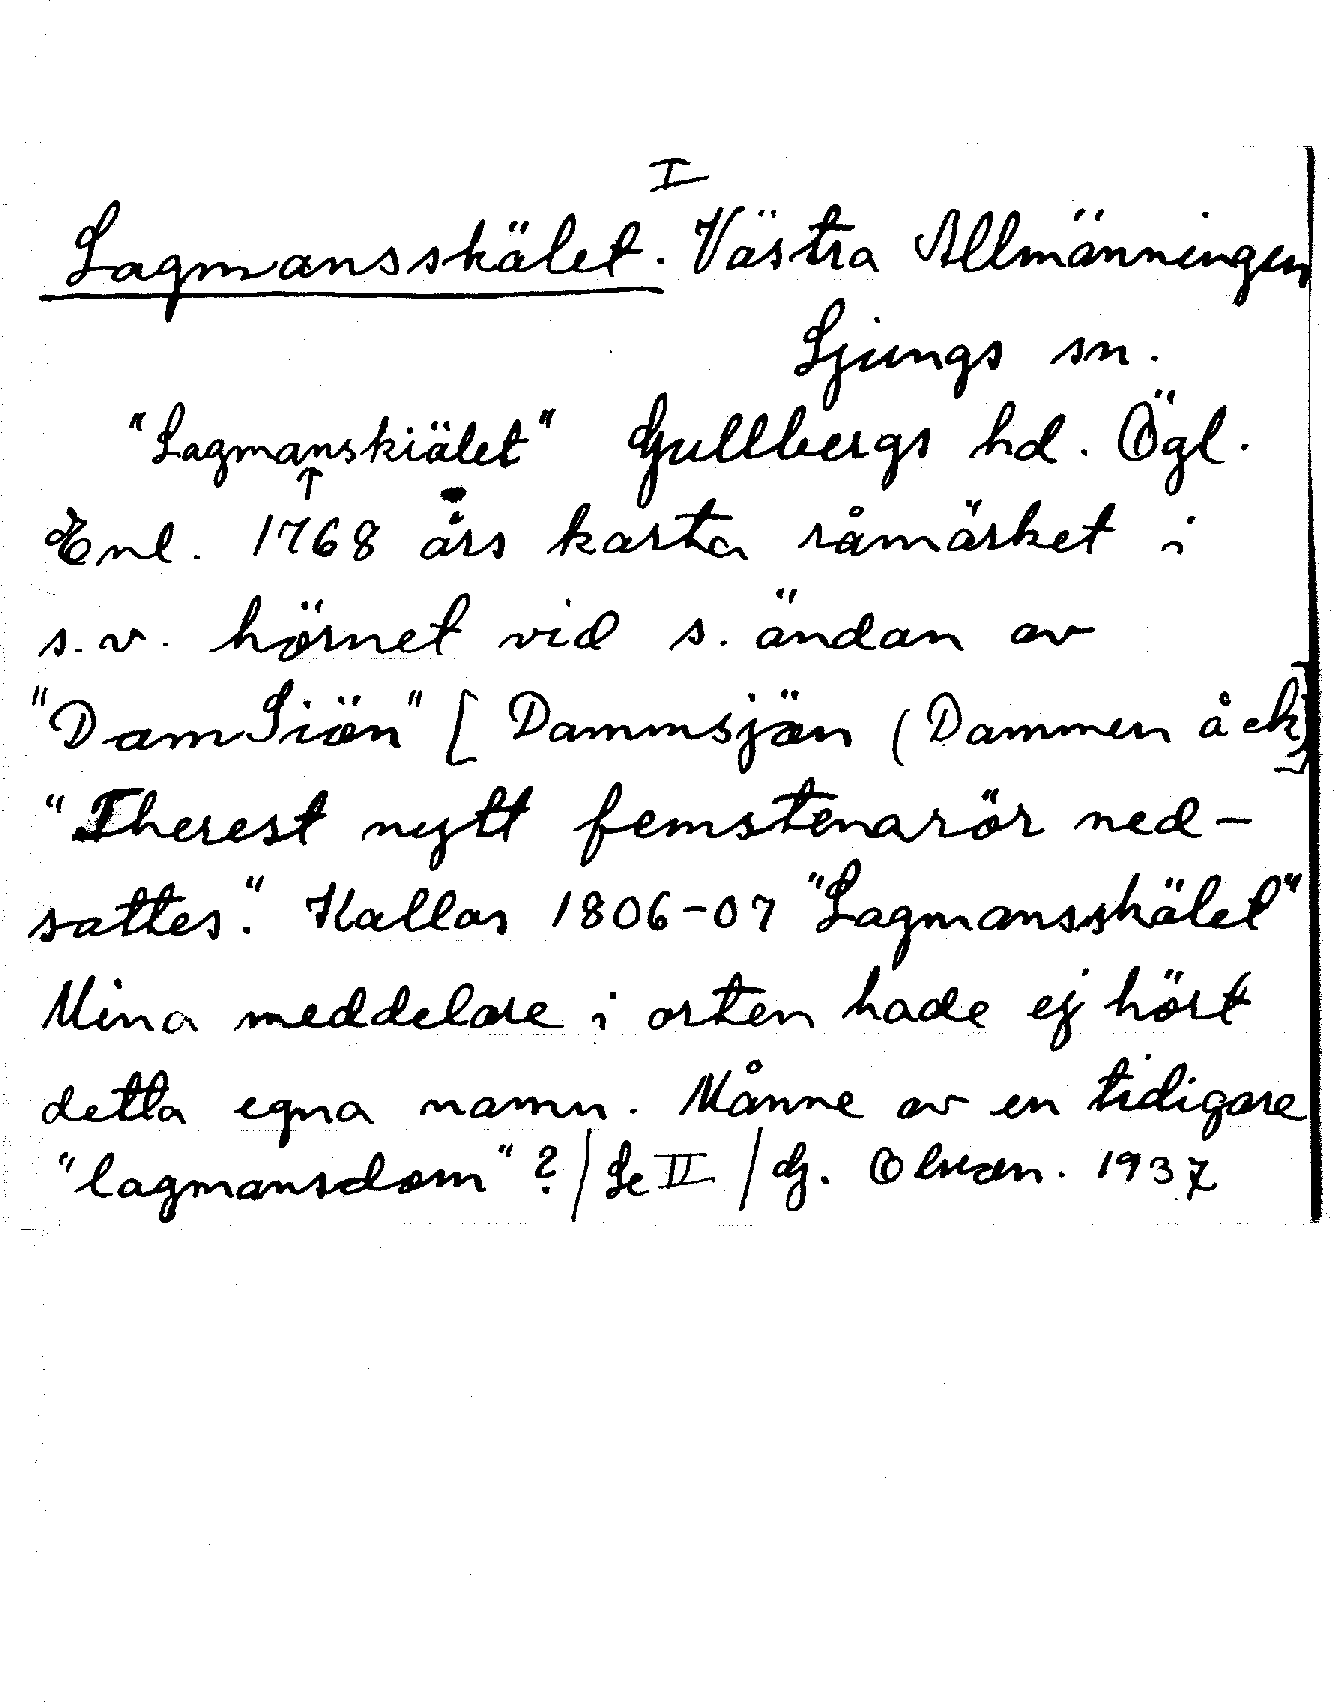 I
Lagmansskälet. Västra Allmänningen
Ljungs sn.
"Lagmanskiälet" Gullbergs hd. Ögl.
↑
Enl. 1768 års karta råmärket i
s.v. hörnet vid s. ändan av
"DamSiön" [Dammsjön (Dammen å ek)]
"Therest nytt femstenarör ned-
sattes." Kallas 1806-07 "Lagmansskälet"
Mina meddelare i orten hade ej hört
detta egna namn. Månne av en tidigare
"lagmansdom"? / Se II / G. 1937